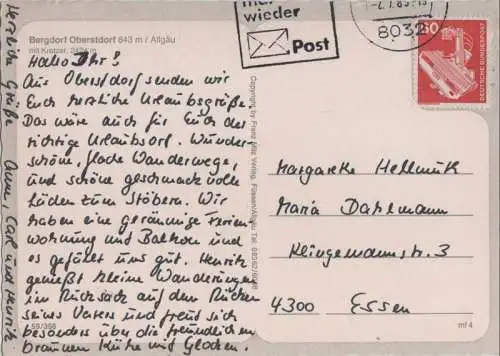 Bergdorf Oberstdorf 843 m / Allgäu
mit Kratzer, 2424 m
Hallo Ihr!
Aus Oberstdorf senden wir
Euch herzliche Urlaubsgrüße.
Das wäre auch für Euch der
richtige Urlaubsort. Wunder-
schöne, flache Wanderwege,
und schöne geschmackvolle
Läden zum Stöbern. Wir
haben eine geräumige Ferien-
wohnung und Balkon und
es gefällt uns gut. Henrik
genießt kleine Wanderungen
im Rücksack auf dem Rücken
seines Vaters und freut sich
besonders über die freundlichen
braunen Kühe mit Glocken.
Herzliche Grüße Anne, Carl und Henrik
59/398
Copyright by Franz Verlag, Füssen/Allgäu Tel.
wieder
Post
8032
60
DEUTSCHE BUNDESPOST
Margarete Hellmuth
Maria Dahlmann
Klingemannstr. 3
4300 Essen
mf 4